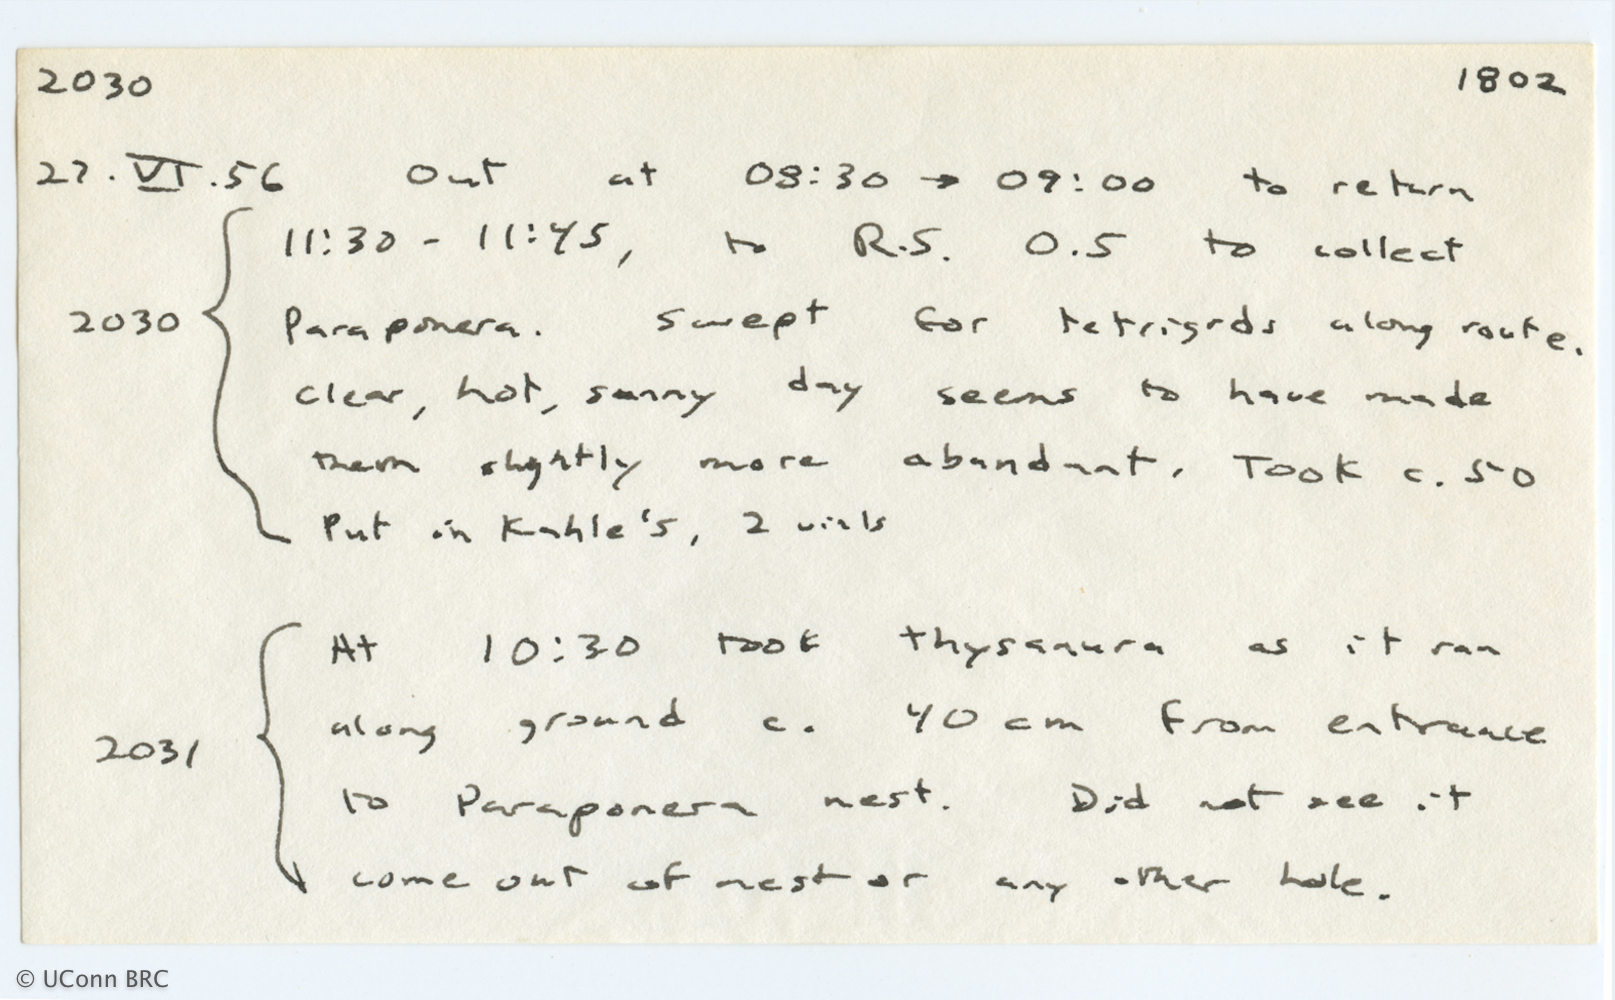 2030 1802
27.VI.56 Out at 08:30 → 09:00 to return
11:30 - 11:45, to R.S. 0.5 to collect
2030 Paraponera. Swept for tetrigids along route.
Clear, hot, sunny day seems to have made
them slightly more abundant. Took c. 50
Put in Kahle's, 2 vials
At 10:30 took thysanura as it ran
along ground c. 40 cm from entrance
2031 to Paraponera nest. Did not see it
come out of nest or any other hole.
© UConn BRC